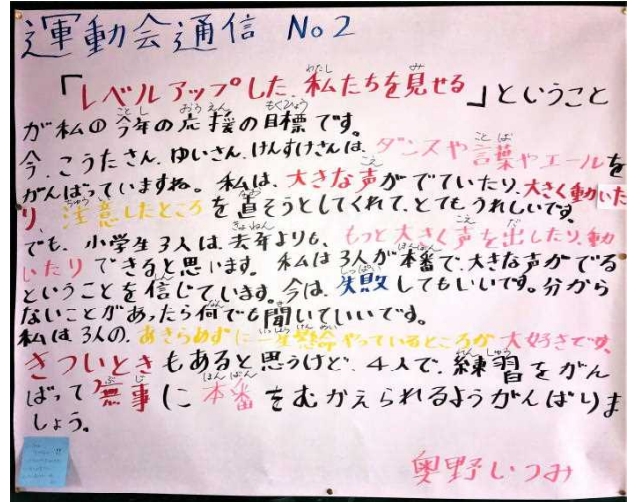 運動会通信 No2
「レベルアップした私たちを見せる」ということ
が私の今年の応援の目標です。
今、こうたさん、ゆいさん、けんすけさんは、ダンスや言葉やエールを
がんばっていますね。私は、大きな声がでていたり、大きく動いた
り、注意したところを直そうとしてくれて、とてもうれしいです。
でも、小学生3人は、去年よりも、もっと大きく声を出したり、動
いたりできると思います。私は3人が本番で、大きな声がでる
ということを信じています。今は、失敗してもいいです。分から
ないことがあったら何でも聞いていいです。
私は3人の、あきらめずに一生懸命やっているところが大好きです。
きついときもあると思うけど、4人で、練習をがん
ばって無事に本番をむかえられるようがんばりま
しょう。
奥野いつみ